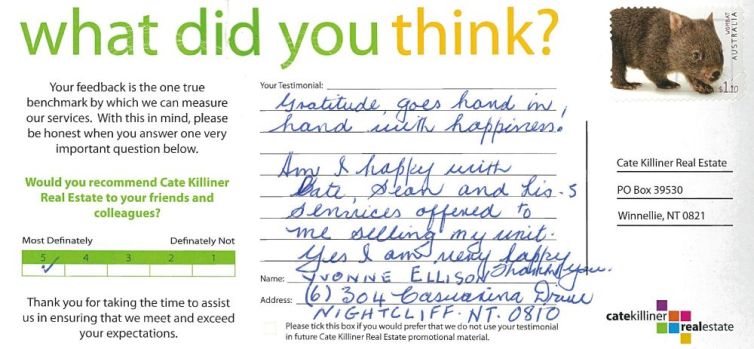 what did you think?
WOMBAT
AUSTRALIA
$1.10
Your feedback is the one true
benchmark by which we can measure
our services. With this in mind, please
be honest when you answer one very
important question below.
Would you recommend Cate Killiner
Real Estate to your friends and
colleagues?
Most Definately Definately Not
5 4 3 2 1
Thank you for taking the time to assist
us in ensuring that we meet and exceed
your expectations.
Your Testimonial:
Gratitude, goes hand in,
hand with happiness.
Am I happy with
Cate, Sean and his
services offered to
me selling my unit.
Yes I am very happy
Thank you.
Name: YVONNE ELLISON
Address: (6) 304 Casuarina Drive
NIGHTCLIFF. NT. 0810
Please tick this box if you would prefer that we do not use your testimonial
in future Cate Killiner Real Estate promotional material.
Cate Killiner Real Estate
PO Box 39530
Winnellie, NT 0821
catekilliner
realestate